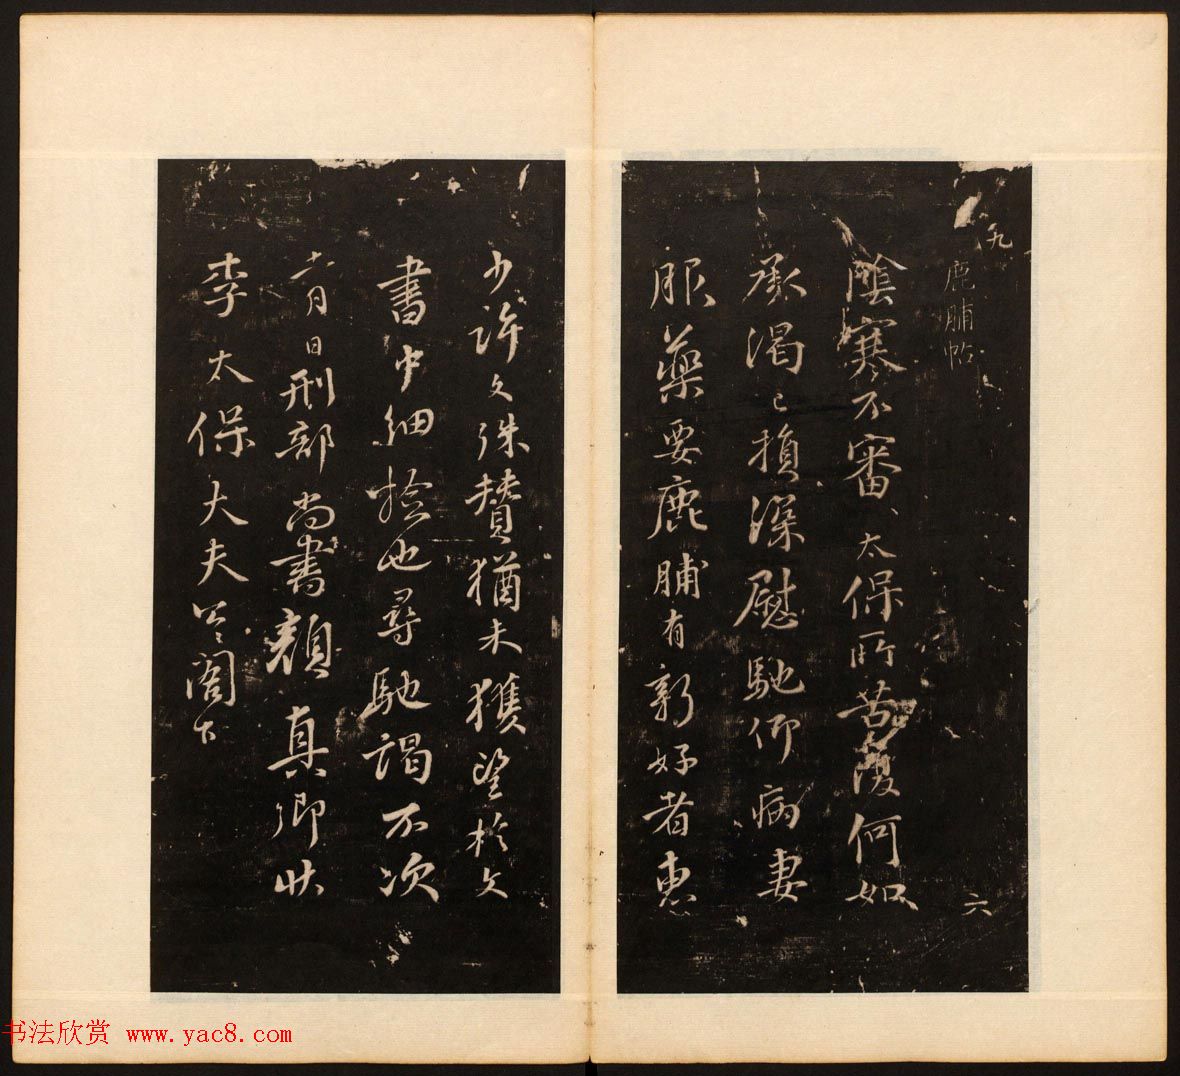 九
鹿脯帖
六
陰寒不審太保所苦復何如
承渴已損深慰馳仰病妻
服藥要鹿脯有新好者惠
少許文殊贊猶未獲望於文
書中細撿也尋馳謁不次
六月日刑部尚書顏真卿狀
李太保大夫公閤下
书法欣赏 www.yac8.com